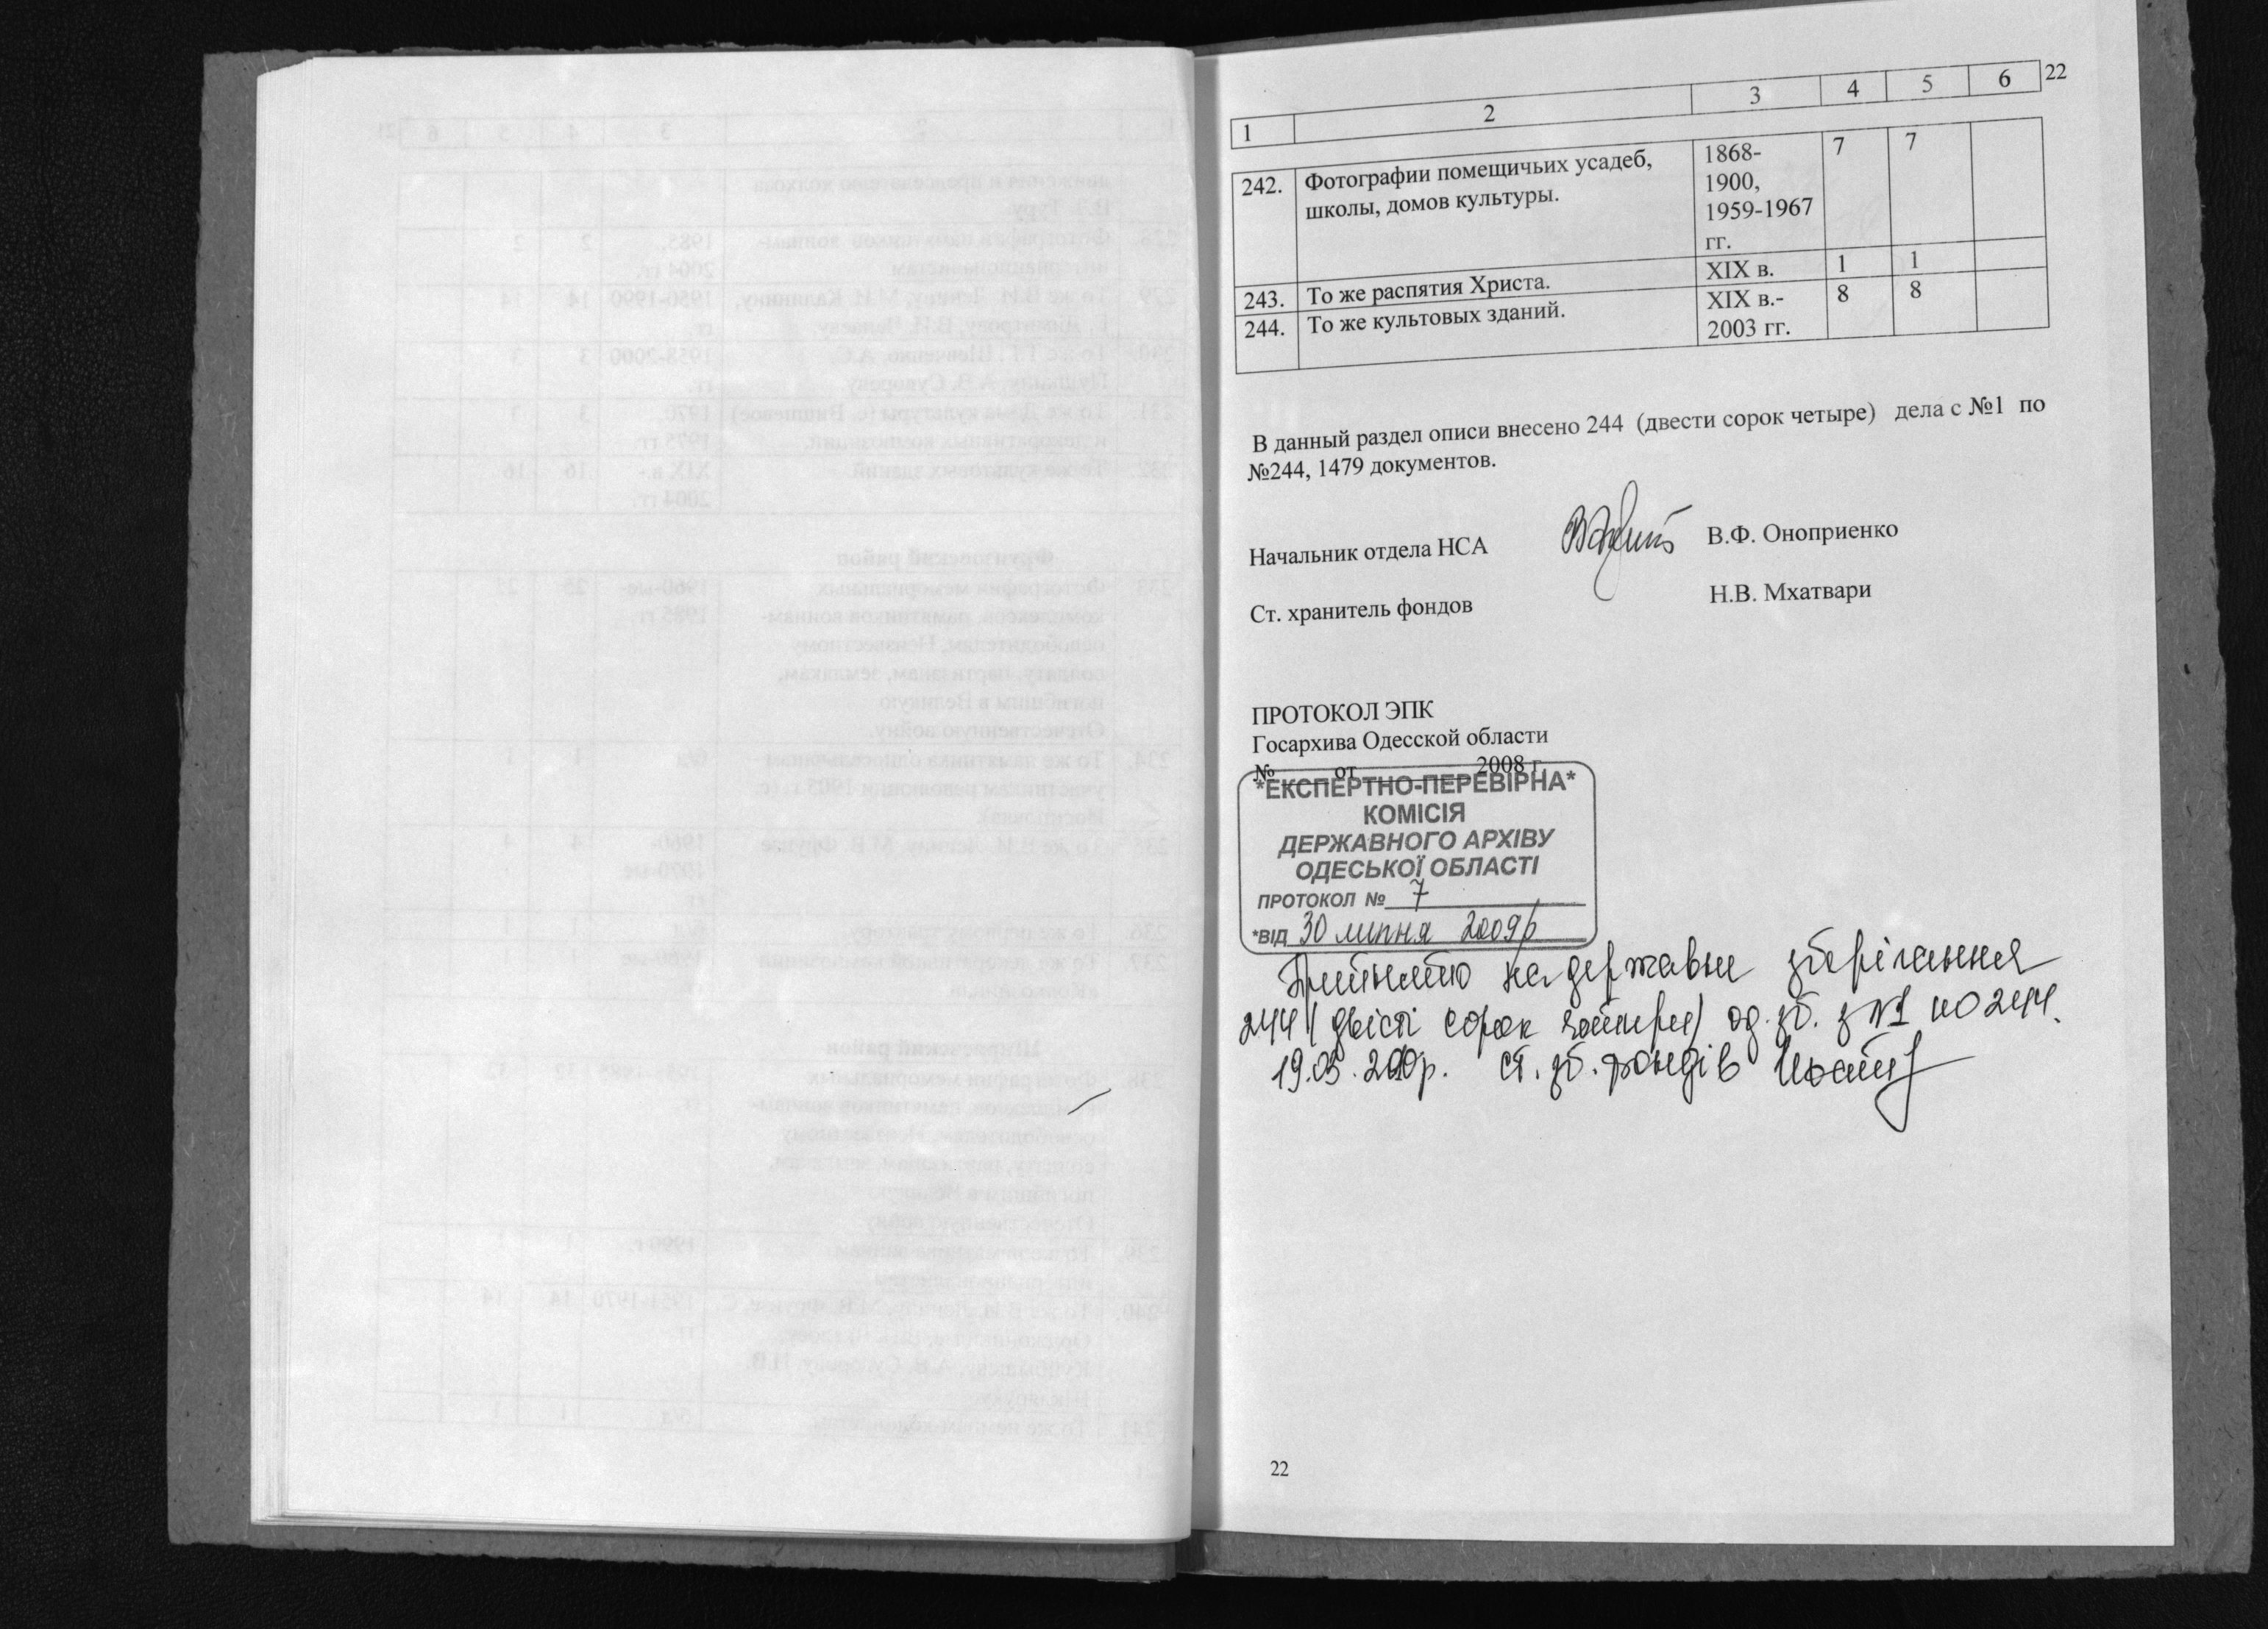 1 2 3 4 5 6 22
242. Фотографии помещичьих усадеб, 1868- 7 7
школы, домов культуры. 1900,
1959-1967
гг.
243. То же распятия Христа. XIX в. 1 1
244. То же культовых зданий. XIX в.- 8 8
2003 гг.
В данный раздел описи внесено 244 (двести сорок четыре) дела с №1 по
№244, 1479 документов.
Начальник отдела НСА В.Ф. Оноприенко
Ст. хранитель фондов Н.В. Мхатвари
ПРОТОКОЛ ЭПК
Госархива Одесской области
№ от 2008 г.
*ЕКСПЕРТНО-ПЕРЕВІРНА*
КОМІСІЯ
ДЕРЖАВНОГО АРХІВУ
ОДЕСЬКОЇ ОБЛАСТІ
ПРОТОКОЛ № 7
*ВІД 30 липня 2009р
Прийнято на державне зберігання
244 (двісті сорок чотири) од. зб. з №1 по 244.
19.03.2010р. ст. зб. фондів
22